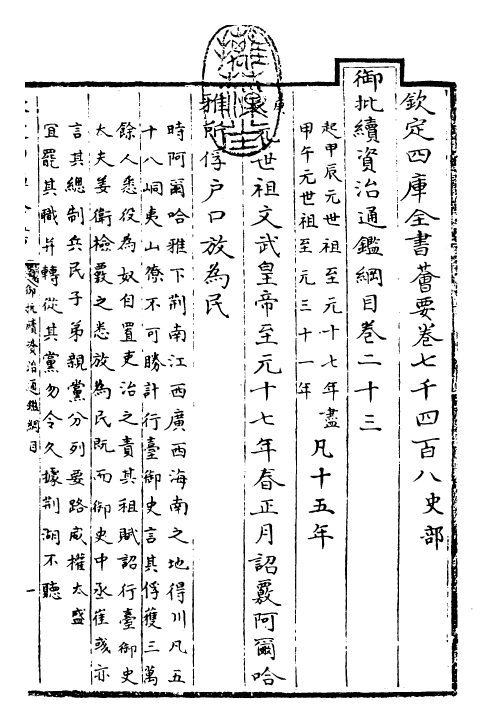 欽定四庫全書薈要卷七千四百八史部
御批續資治通鑑綱目卷二十三
起甲辰元世祖至元十七年盡
甲午元世祖至元三十一年
凡十五年
庚辰元世祖文武皇帝至元十七年春正月詔覈阿爾哈
雅所俘户口放為民
時阿爾哈雅下荆南江西廣西海南之地得州凡五
十八峒夷山獠不可勝計行臺御史言其俘獲三萬
餘人悉役為奴自置吏治之責其租賦詔行臺御史
大夫姜衛檢覈之悉放為民既而御史中丞崔彧亦
言其總制兵民子弟親黨分列要路威權太盛
宜罷其職并轉從其黨勿令久據荆湖不聽
御批續資治通鑑綱目
一